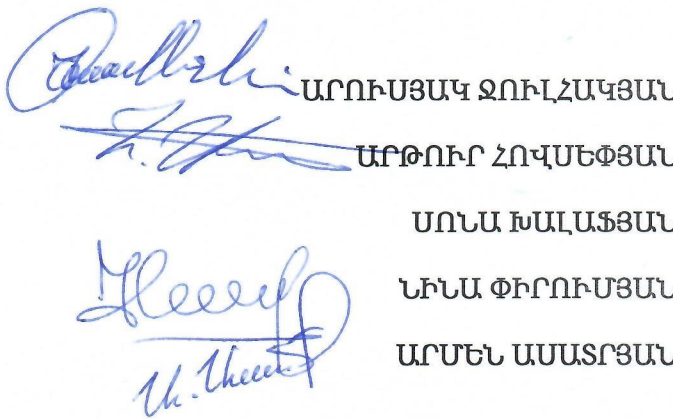 ԱՐՈՒՍՅԱԿ ՋՈՒԼՀԱԿՅԱՆ
ԱՐԹՈՒՐ ՀՈՎՍԵՓՅԱՆ
ՍՈՆԱ ԽԱԼԱՖՅԱՆ
ՆԻՆԱ ՓԻՐՈՒՄՅԱՆ
ԱՐՄԵՆ ԱՍԱՏՐՅԱՆ